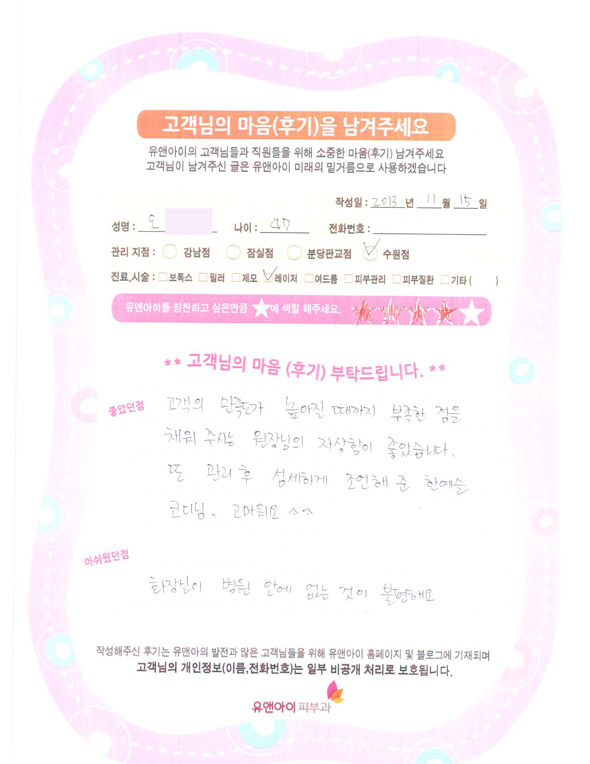 고객님의 마음(후기)을 남겨주세요
유앤아이의 고객님들과 직원들을 위해 소중한 마음(후기) 남겨주세요
고객님이 남겨주신 글은 유앤아이 미래의 밑거름으로 사용하겠습니다
작성일 : 2013 년 11 월 15 일
성명 : 오 나이 : 47 전화번호 :
관리 지점 : 강남점 잠실점 분당판교점 수원점
진료,시술 : 보톡스 필러 제모 레이저 여드름 피부관리 피부질환 기타 ( )
유앤아이를 칭찬하고 싶은만큼 ★에 색칠 해주세요.
** 고객님의 마음 (후기) 부탁드립니다. **
좋았던점
고객의 만족도가 높아질 때까지 부족한 점을
채워 주시는 원장님의 자상함이 좋았습니다.
또 관리 후 섬세하게 조언해 준 한예슬
코디님, 고마워요 ^^
아쉬웠던점
화장실이 병원 안에 없는 것이 불편해요
작성해주신 후기는 유앤아의 발전과 많은 고객님들을 위해 유앤아이 홈페이지 및 블로그에 기재되며
고객님의 개인정보(이름,전화번호)는 일부 비공개 처리로 보호됩니다.
유앤아이 피부과